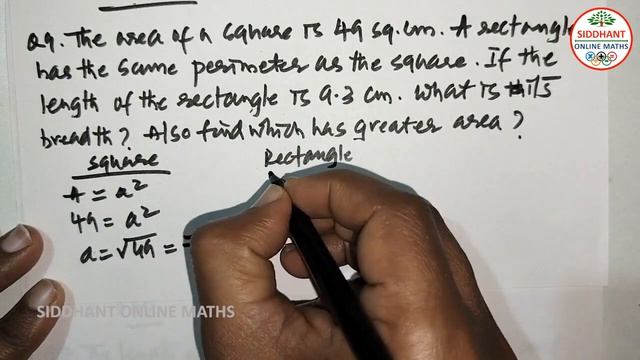 Q9. The area of a square is 49 sq. cm. A rectangle
has the same perimeter as the square. If the
length of the rectangle is 9.3 cm. What is its
breadth? Also find which has greater area?
square
Rectangle
A = a²
49 = a²
a = √49 =
SIDDHANT
ONLINE MATHS
SIDDHANT ONLINE MATHS